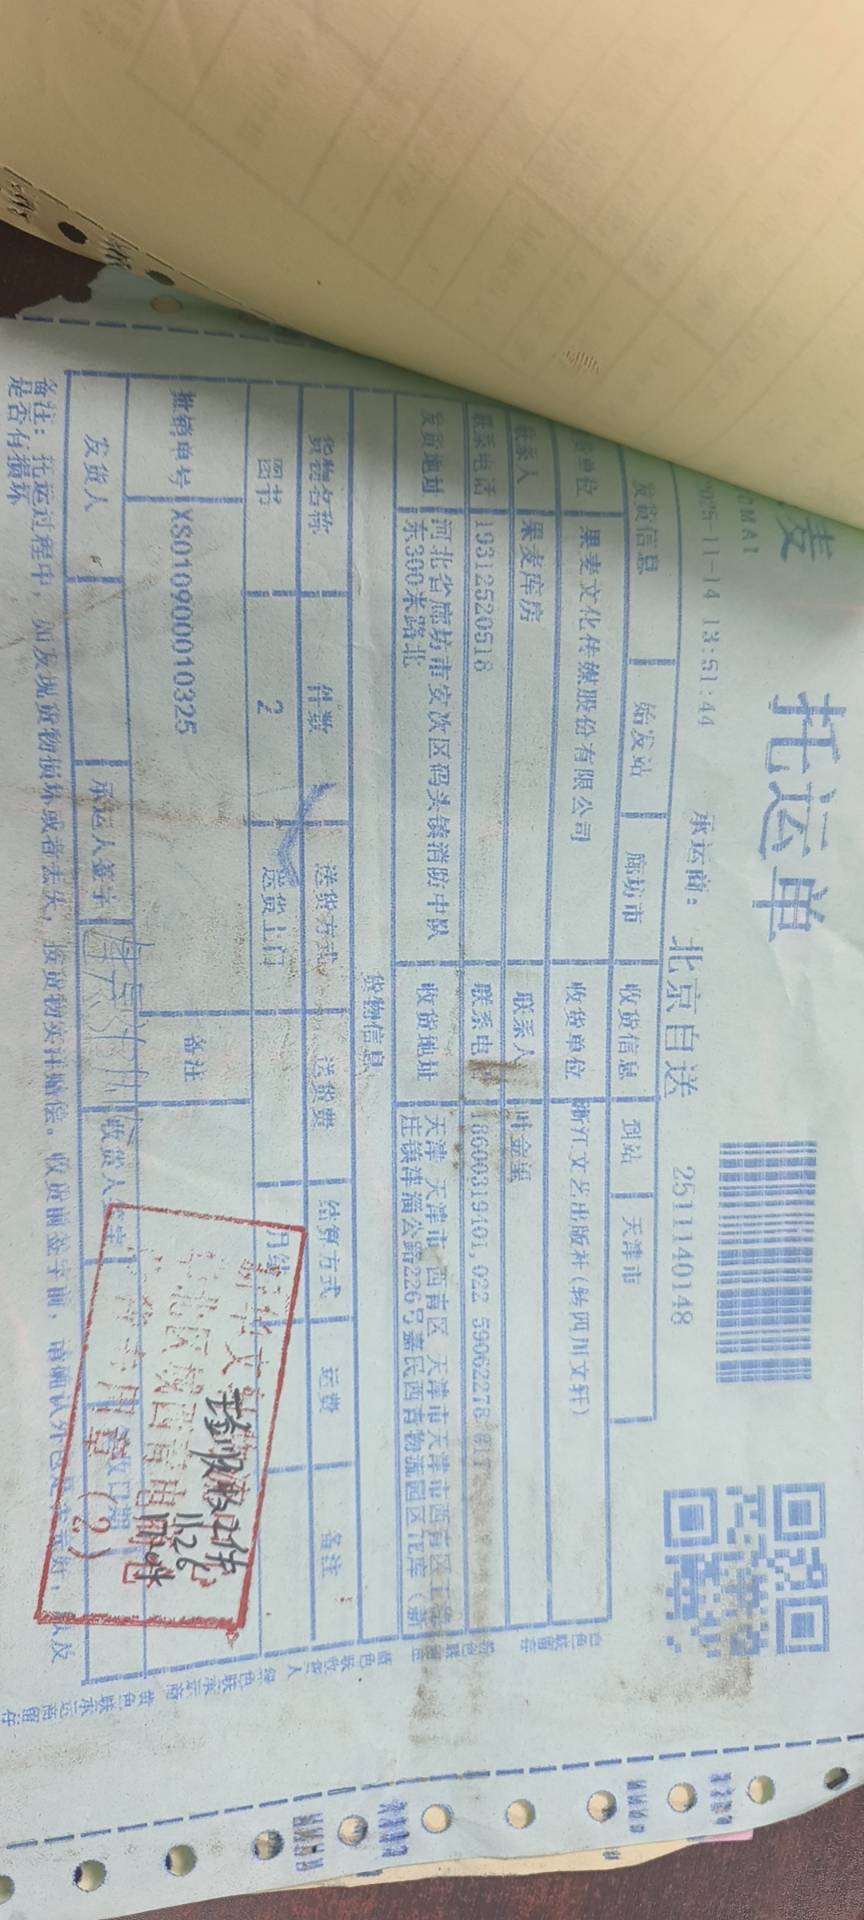 麦
托运单
2025-11-14 13:51:44 承运商: 北京自送 2511140148
发货信息 始发站 廊坊市 收货信息 到站 天津市
单位 果麦文化传媒股份有限公司 收货单位 浙江文艺出版社(转四川文轩)
联系人 果麦库房 联系人 叶金星
联系电话 19312520518 联系电 18600319101,022 59062278
发货地址 河北省廊坊市安次区码头镇消防中队 收货地址 天津 天津市 西青区 天津市天津市西青区王
东300米路北 庄镇津涞公路226号嘉民西青物流园区
货物信息
货物名称 件数 送货方式 送货费 结算方式 运费 备注
图书 2 送货上门 月结
推销单号 XS0109000010325 备注
发货人 承运人签字 收货人 收日期
验收
11.26
(2)
备注: 托运过程中, 如发现货物损坏或者丢失, 按货物实洋赔偿。收货前签字前, 请确认外包是否
是否有损坏
白色联留存
蓝色联收货人
绿色联承运商
黄色联承运商留存